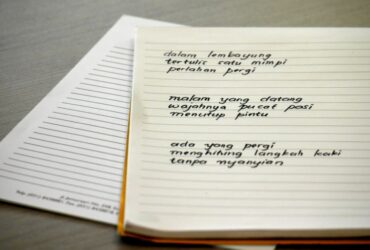 dalam lembayung
tertulis satu mimpi
perlahan pergi
malam yang datang
wajahnya pucat pasi
menutup pintu
ada yang pergi
menghihing langkah kaki
tanpa nyanyian